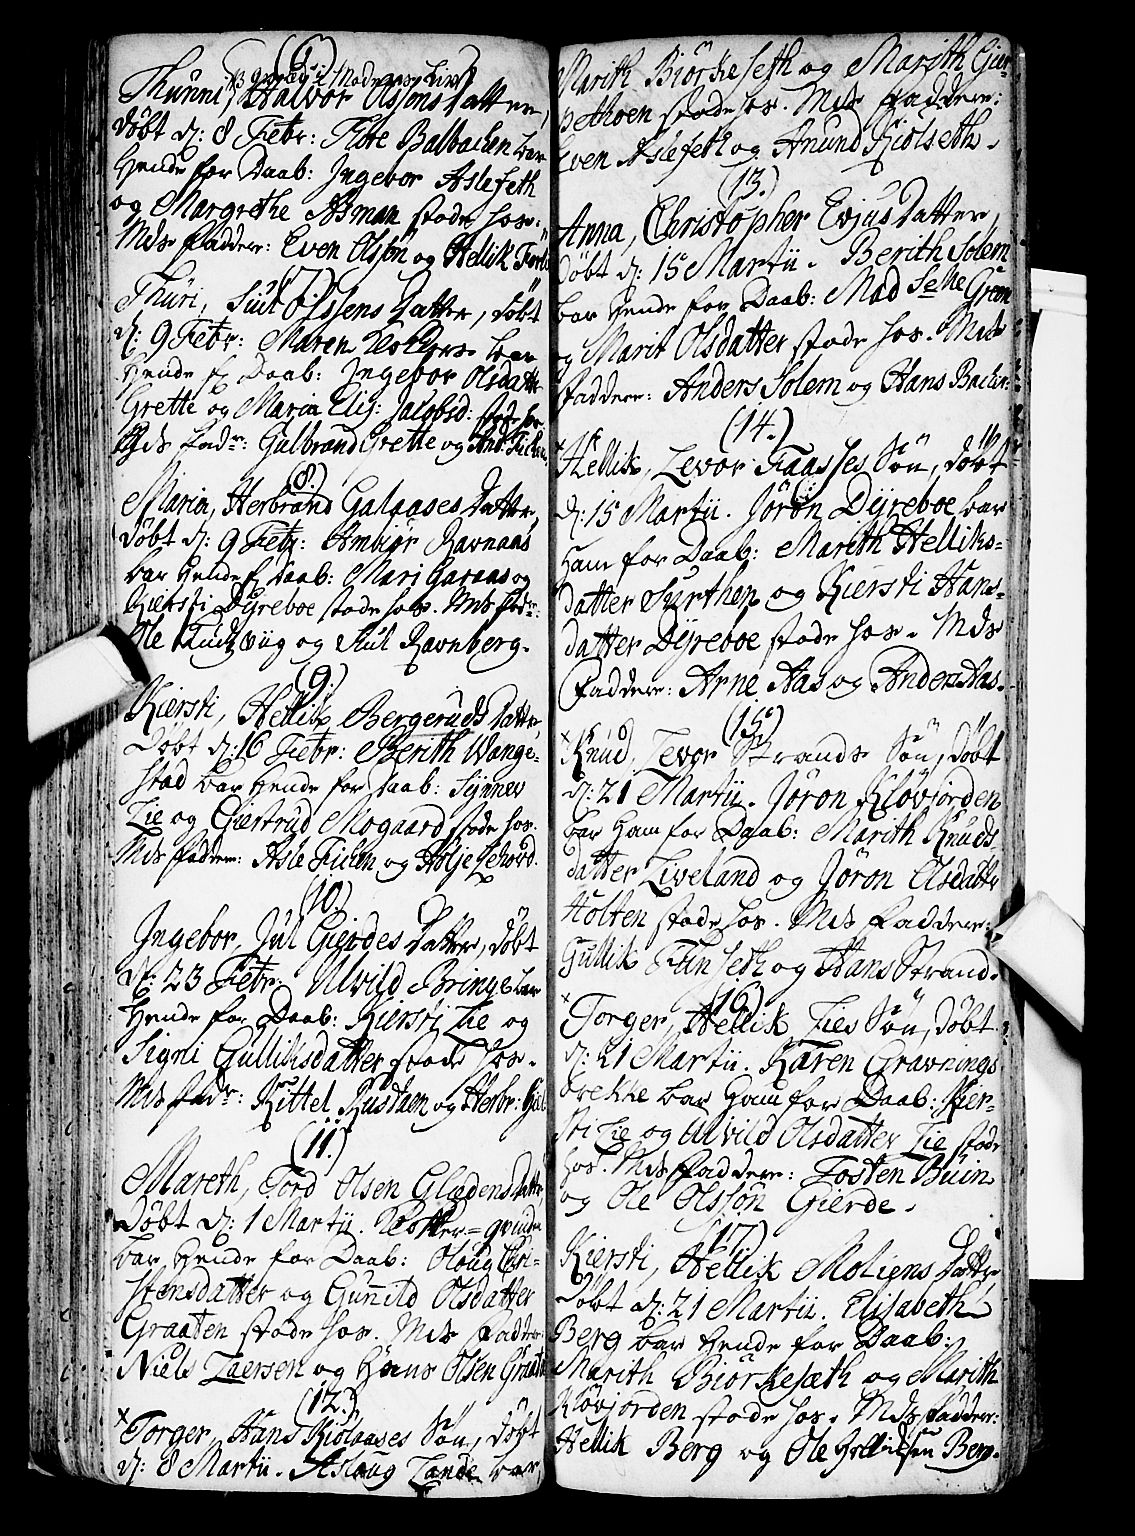 (6.)
Thurni, Halvor Olsøns datter,
døbt d: 8 Febr: Flore Balbachen bar
Hende før Daab: Ingebor Aslefeth
og Margrethe Asman stode hos.
Mds faddere: Even Olssøn og Hellik
(7.)
Thuri, Olssens datter, døbt
d: 9 Febr: Maren bar
Hende f Daab: Ingebor Olsdatt
Grette og Maria Elis: Jacobsd: stod hos
Mds fadr: Gulbrand Grette og And:
(8.)
Maria, Herbrand Galaases datter,
døbt d: 9 Febr: Ambiør Ravnaas
bar Hende f daab: Mari Garaas og
Kiersti Dyreboe stode hos. Mds fadr:
Ole og Ravnberg.
(9.)
Kiersti, Hellik Bergeruds datter
Døbt d: 16 Febr: Berith Wange-
stad bar Hende for daab: Synnev
Lie og Giertrud Mogaard stode hos.
Mds faddere: Asle og Holje
(10.)
Ingebor, Jul Gierdes datter, døbt
d: 23 Febr: Ulvild Bringe bar
Hende for Daab: Kiersti Lie og
Signi Gulliksdatter stode hos.
Mds fadr: Kittel og Herbr:
(11.)
Mareth, Tord Olsen Glædens datter
Døbt d: 1 Martii.
bar Hende for Daab: Oloug Chri-
stensdatter og Gunild Olsdatter
Graaten stode hos. Mds Fadder:
Niels Laersen og Hans Olsen
(12.)
Torger, Hans Kiølaases Søn, døbt
d: 8 Martii. Aslaug Lande bar
Marith Biörkeseth og Marith
stode hos. Mds Faddere:
Even Aslefeth og Anund Kiölseth.
(13.)
Anna, Christopher Evjus datter,
døbt d: 15 Martii. Berith Solem
bar Hende for Daab: Mad Selle Green
og Marit Olsdatter stode hos. Mds
Faddere: Anders Solem og Hans
(14.)
Hellik, Levor Faasses Søn, døbt
d: 15 Martii. Jörön Dyreboe bar
Ham for Daab: Marith Helliks-
datter og Kiersti Hans-
datter Dyreboe stode hos. Mds
Faddere: Arne Aas og Anders Aas.
(15.)
Knud, Levor Strands Søn, døbt
d: 21 Martii. Jörön Kløvjorden
bar Ham for Daab: Marith Knuds
datter Liveland og Jörön Olsdatter
Holten stode hos. Mds Faddere:
Gullik og Hans Strand.
(16.)
Torger, Hellik Lies Søn, døbt
d: 21 Martii. Karen Gravnings
brekke bar Ham for Daab: Kier-
sti Lie og Ulvild Olsdatter Lie stode
hos. Mds Faddere: Tosten Buin
og Ole Olssøn Gierde.
(17.)
Kiersti, Hellik Moliens datter
Døbt d: 21 Martii. Elisabeth
Berg bar Hende for Daab:
Marith Biörkesæth og Marith
Kløvjorden stode hos. Mds Fadder:
Hellik Berg og Ole Helliksen Berg.